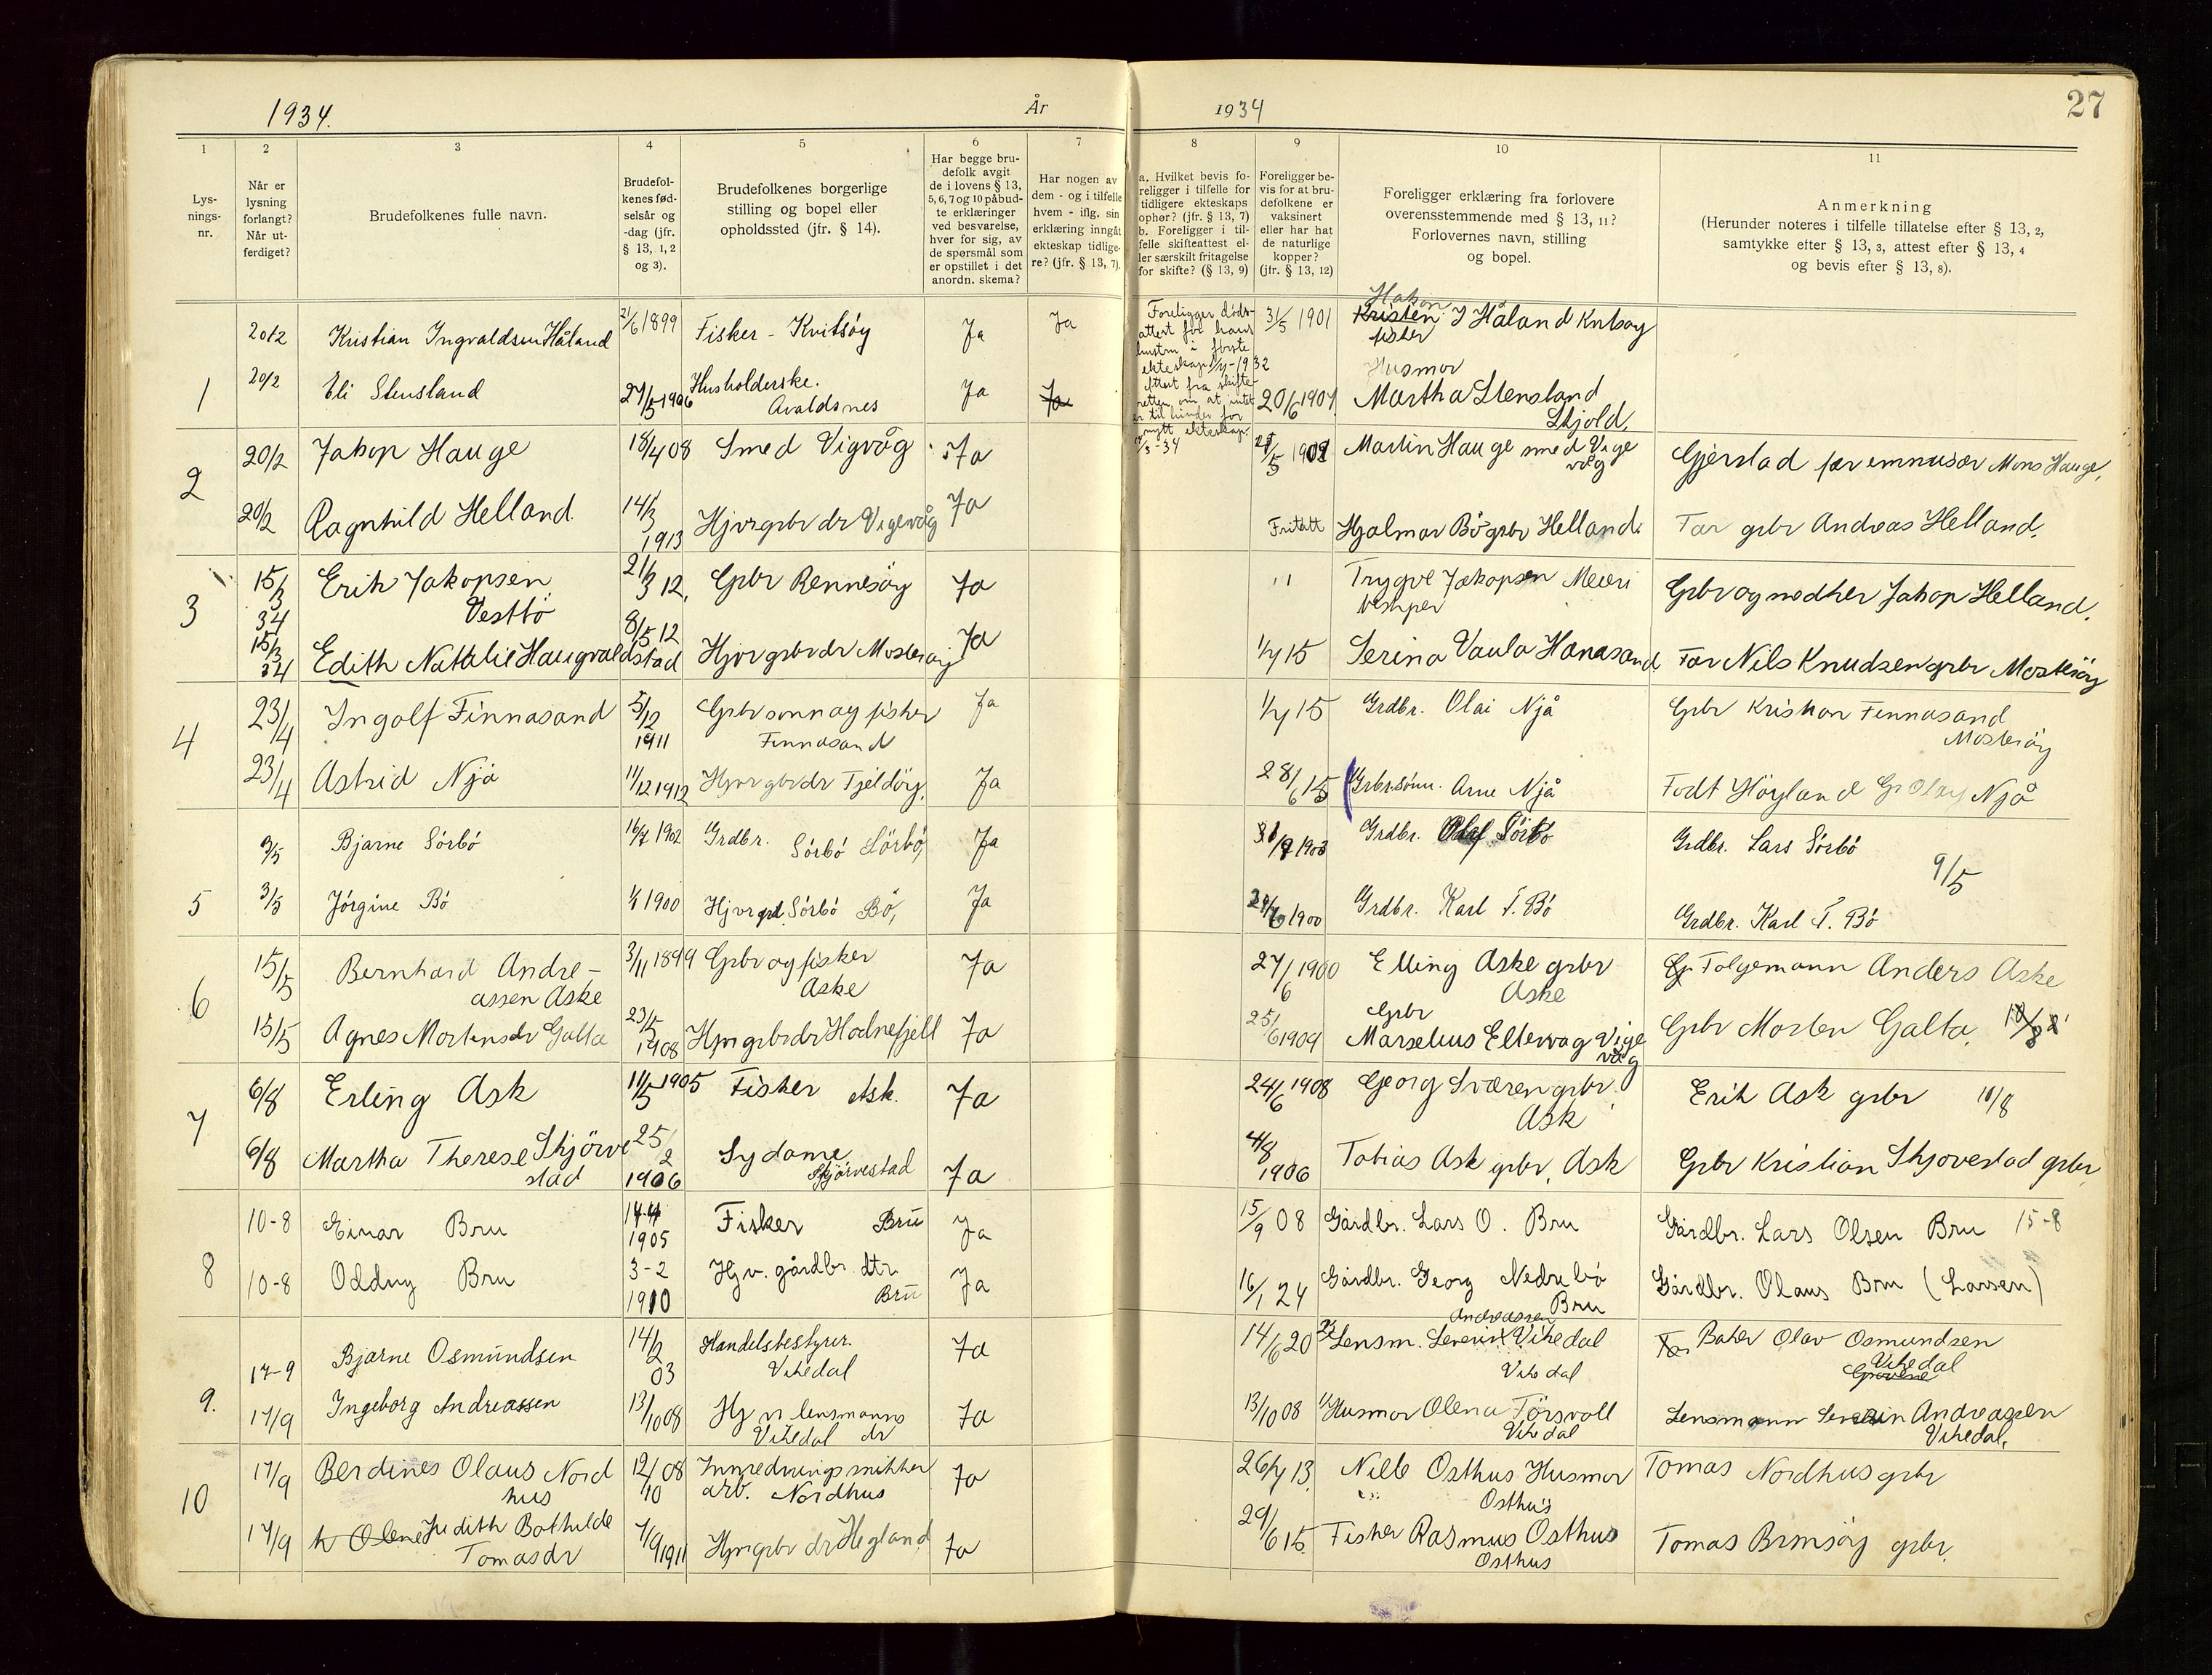 1934.
År
1934
27
1
2
3
4
5
6
7
8
9
10
11
Lys-
nings-
nr.
Når er
lysning
forlangt?
Når ut-
ferdiget?
Brudefolkenes fulle navn.
Brudefol-
kenes fød-
selsår og
-dag (jfr.
§ 13, 1, 2
og 3).
Brudefolkenes borgerlige
stilling og bopel eller
opholdssted (jfr. § 14).
Har begge bru-
defolk avgit
de i lovens § 13,
5, 6, 7 og 10 påbud-
te erklæringer
ved besvarelse,
hver for sig, av
de spørsmål som
er opstillet i det
anordn. skema?
Har nogen av
dem - og i tilfelle
hvem - iflg. sin
erklæring inngåt
ekteskap tidlige-
re? (jfr. § 13, 7).
a. Hvilket bevis fo-
religger i tilfelle for
tidligere ekteskaps
ophør? (jfr. § 13, 7)
b. Foreligger i til-
felle skifteattest el-
ler særskilt fritagelse
for skifte? (§ 13, 9)
Foreligger be-
vis for at bru-
defolkene er
vaksinert
eller har hat
de naturlige
kopper?
(jfr. § 13, 12)
Foreligger erklæring fra forlovere
overensstemmende med § 13, 11?
Forlovernes navn, stilling
og bopel.
Anmerkning
(Herunder noteres i tilfelle tillatelse efter § 13, 2,
samtykke efter § 13, 3, attest efter § 13, 4
og bevis efter § 13, 8).
20/2 Kristian Ingvaldsen Håland 2/6 1899 Fisker - Kvitsøy Ja Ja
Foreligger døds-
attest for hans
hustru i første
ekteskap 1/4-1932
attest fra skifte-
retten om at intet
er til hinder for
nytt ekteskap.
/3-34
31/5 1901 Håkon
Kristen I Håland Kvitsøy
fisker
1 20/2 Eli Stensland 27/5 1906 Husholderske.
Avaldsnes Ja Ja 20/6 1907 Husmor
Martha Stensland
Skjold.
2 20/2 Jakop Hauge 18/4 08 Smed Vigvåg Ja /5 190 Martin Hauge smed Vige
våg Gjerstad far emnusær Mons Hauge,
20/2 Ragnhild Helland 14/3
1913 Hjvrgrbr dr Vigevåg Ja Fritatt Hjalmar Bö grbr Helland. Far grbr Andreas Helland.
3 15/3
34 Erik Jakopsen
Vestbö 21/3 12. Grbr Rennesöy Ja " Trygve Jakopsen Meieri
bestyrer Grbr og nedker Jakop Helland.
15/3
34 Edith Natalie Haugvaldstad 8/5 12 Hjvr grbr dr Mosteröy Ja 1/7 15 Serina Vaula Hanasand Far Nils Knudsen grbr Mosteröy
4 23/4 Ingolf Finnasand 5/12
1911 Grbr sønn og fisker
Finnasand Ja 1/7 15 Grdbr. Olai Njå Grbr Kristian Finnasand
Mosteröy
23/4 Astrid Njå 11/12 1912 Hjvr grbr dr Fjeldöy. Ja 28/6 15 Grbr.sönn. Arne Njå Födt Höyland Gr Olay Njå
3/5 Bjarne Sörbö 16/7 1902 Grdbr. Sörbö Sörbö, Ja 31/7 1903 Grdbr. Olaf Sörbö Grdbr. Lars Sörbö
9/5
5 3/5 Jörgine Bö 1/1 1900 Hjvr grd Sörbö Bö, Ja 1900 Grdbr. Karl T. Bö Grdbr. Karl T. Bö
6 15/5 Bernhard Andre-
assen Aske 3/11 1899 Grbr og fisker
Aske Ja 27/6 1900 Elling Aske grbr
Aske Gr Folgemann Anders Aske
15/5 Agnes Mortensdr Galta 23/5
1908 Hjvr grbrdr Hodnefjell Ja 25/6 1909 Grbr
Marselius Eltervag Vige
våg Grbr Morten Galta. 10/8
7 6/8 Erling Ask 11/5 1905 Fisker Ask. Ja 24/6 1908 Georg Sværen grbr
Ask Erik Ask grbr 10/8
6/8 Martha Therese Skjörve
stad 25/2
1906 Sydame
Skjörvestad Ja 4/8
1906 Tobias Ask grbr, Ask Grbr Kristian Skjorvestad grbr
8 10-8 Einar Bru 14-4
1905 Fisker Bru Ja 15/9 08 Gårdbr. Lars O. Bru Gårdbr. Lars Olsen Bru 15-8
10-8 Oddny Bru 3-2
1910 Hjv. gårdbr. dtr.
Bru Ja 16/1 24 Gårdbr. Georg Nedrebö
Bru Gårdbr. Olaus Bru (Larsen)
9. 17-9 Bjarne Osmundsen 14/2
03 Handelsbestyrer.
Vikedal Ja 14/6 20 Andreassen
Lensm. Severin Vikedal
Vikedal Far Baker Olav Osmundsen
Vikedal
17/9 Ingeborg Andreassen 13/10 08 Hj vr lensmanns
Vikedal dr Ja 13/10 08 Husmor Olena Törsvoll
Vikedal Lensmann Severin Andreassen
Vikedal.
10 17/9 Berdines Olaus Nord
hus 12/10 08 Innredningssnikker
arb. Nordhus Ja 26/7 13. Nille Osthus Husmor
Osthus Tomas Nordhus grbr
17/9 Olene Judith Bothilde
Tomasdr 7/9 1911 Hjvr grbr dr Hegland Ja 29/6 15. Fisker Rasmus Osthus
Osthus Tomas Brimsöy grbr.